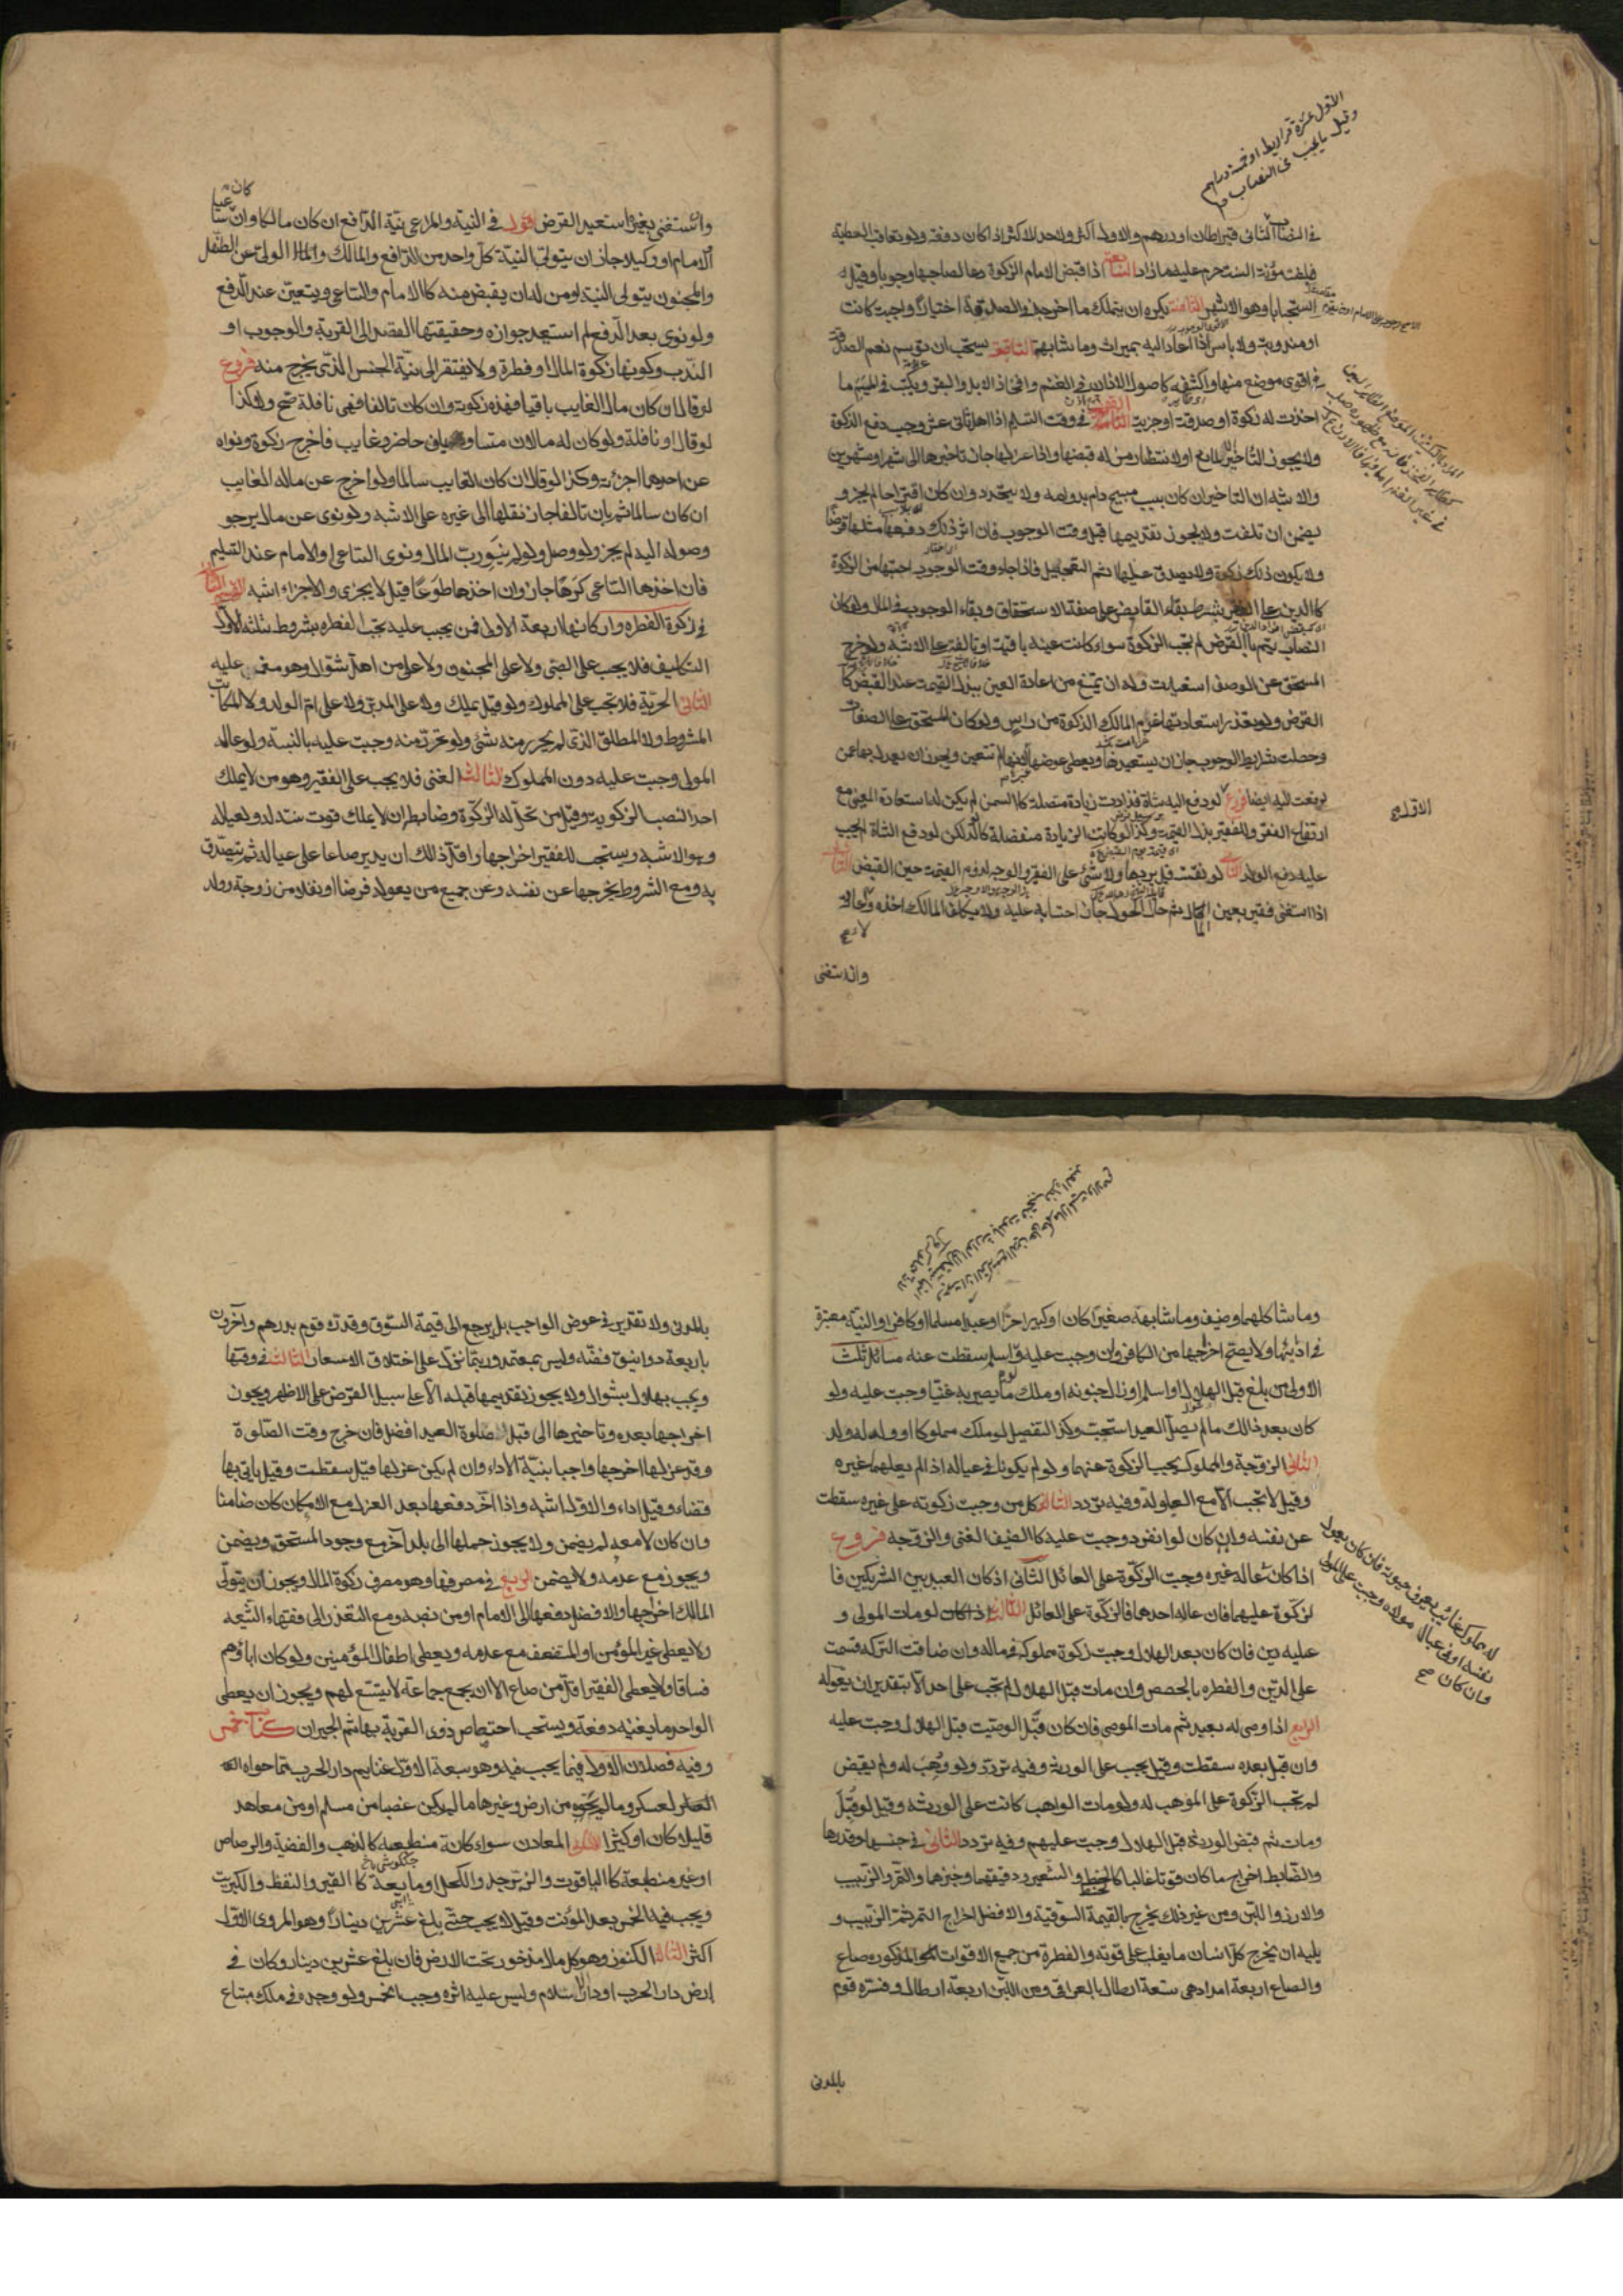 الاول عشرة قراريط او خمسة دراهم
وقيل ما يجب في النصاب
في النصاب الثانى قيراطان او درهم والاول اكثر ولا حد للاكثر اذا كان دفعة ولو تعاقب العطية
فبلغت مؤنة السنة حرم عليه ما زاد السابعة اذا قبض الامام الزكوة دعا لصاحبها وجوبا وقيل
استحبابا وهو الاشهر الثامنة يكره ان يتملك ما اخرجه في الصدقة اختيارًا واجبة كانت
او مندوبة ولا باس اذا اعاد اليه بميراث وما شابهه التاسعة يستحب ان توسم نعم الصدقة
في اقوى موضع منها واكشفه كاصول الاذان في الغنم وافخاذ الابل والبقر ويكتب في الميسم ما
اخذت له زكوة او صدقة او جزية القول في وقت التسليم اذا اهل ثانى عشر وجب دفع الزكوة
ولا يجوز التاخير الا لمانع او لانتظار من له قبضها واذا عزلها جاز تاخيرها الى شهر او شهرين
والاشبه ان التاخير ان كان بسبب مبيح دام بدوامه ولا يتحدد وان كان اقتراحا لم يجز و
يضمن ان تلفت ولا يجوز تقديمها قبل وقت الوجوب فان اثر ذلك دفع مثلها قرضا
ولا يكون ذلك زكوة ولا يصدق عليها اسم التعجيل فاذا جاء وقت الوجوب احتسبها من الزكوة
كالدين على الفقير بشرط بقاء القابض على صفة الاستحقاق وبقاء الوجوب في المال ولو كان
النصاب يتم بالقرض لم تجب الزكوة سواء كانت عينه باقية او تالفة على الاشبه ولو خرج
المستحق عن الوصف استعيدت وله ان يمنع من اعادة العين ببذل القيمة عند القبض كا
القرض ولو تعذر استعادتها غرم المالك الزكوة من راس ولو كان المستحق على الصفات
وحصلت شرايط الوجوب جاز ان يستعيدها ويعطى عوضها لانها لم تتعين ويجوز ان يعدل بها عمن
دفعت اليه ايضا فروع لو دفع اليه شاة فزادت زيادة متصلة كالسمن لم يكن له استعادة العين مع
ارتفاع الفقر وللفقير بذل القيمة وكذا لو كانت الزيادة منفصلة كالولد لكن لو دفع الشاة لم يجب
عليه دفع الولد الثانى لو نقصت قيل يردها ولا شئ على الفقير والوجه لزوم القيمة حين القبض الثالث
اذا استغنى فقير بعين المال ثم حال الحول جاز احتسابه عليه ولا يكلف المالك اخذه واعادته
وان استغنى
وان استغنى بغيره استعيد القرض القول في النية والمراعى نية الدافع ان كان مالكا وان كان ساعيا
او الامام او وكيلا جاز ان يتولى النية كل واحد من الدافع والمالك والولى عن الطفل
والمجنون يتولى النية او من له ان يقبض منه كالامام والساعى ويتعين عند الدفع
ولو نوى بعد الدفع لم استبعد جوازه وحقيقتها القصد الى القربة والوجوب او
الندب وكونها زكوة المال او فطرة ولا يفتقر الى نية الجنس الذى يخرج منه فروع
لو قال ان كان مالى الغايب باقيا فهذه زكوته وان كان تالفا فهى نافلة صح ولا كذا
لو قال او نافلة ولو كان له مالان متساويان حاضر وغايب فاخرج زكوة ونواه
عن احدهما اجزئته وكذا لو قال ان كان الغايب سالما ولو اخرج عن ماله الغايب
ان كان سالما ثم بان تالفا جاز نقلها الى غيره على الاشبه ولو نوى عن مال يرجو
وصوله اليه لم يجز ولو وصل ولو لم ينو رب المال ونوى الساعى او الامام عند التسليم
فان اخذها الساعى كرهًا جاز وان اخذها طوعًا قيل لا يجزى والاجزاء اشبه القسم الثانى
في زكوة الفطره واركانها اربعة الاول فمن يجب عليه تجب الفطره بشروط ثلثه الاول
التكليف فلا يجب على الصبى ولا على المجنون ولا على من اهل شوال وهو مغمى عليه
الثانى الحرّية فلا تجب على المملوك ولو قيل يملك ولا على المدبر ولا على ام الولد ولا المكاتب
المشروط ولا المطلق الذى لم يحرر منه شئ ولو تحرر منه وجبت عليه بالنسبة ولو عاله
المولى وجبت عليه دون المملوك الثالث الغنى فلا يجب على الفقير وهو من لا يملك
احد النصب الزكوية وقيل من تحل له الزكوة وضابطه ان لا يملك قوت سنة له ولعياله
وهو الاشبه ويستحب للفقير اخراجها واقل ذالك ان يدير صاعا على عياله ثم يتصدق
به ومع الشروط يخرجها عن نفسه وعن جميع من يعوله فرضا او نفلا من زوجة وولد
وما شاكلهما وضيف وما شابهه صغيرا كان او كبيرا حرًا او عبدا مسلما او كافرا والنية معتبرة
في ادائها ولا يصح اخراجها من الكافر وان وجبت عليه ولو اسلم سقطت عنه مسائل ثلث
الاولى من بلغ قبل الهلال او اسلم او زال جنونه او ملك ما يصير به غنيا وجبت عليه ولو
كان بعد ذالك ما لم يصل العيد استحبت وكذا التفصيل لو ملك مملوكا او ولد له ولد
الثانى الزوجة والمملوك يجب الزكوة عنهما ولو لم يكونا في عياله اذا لم يعلهما غيره
وقيل لا تجب الا مع العيلولة وفيه تردد الثالثة كل من وجبت زكوته على غيره سقطت
عن نفسه وان كان لو انفرد وجبت عليه كالضيف الغنى والزوجه فروع
له مملوك غائب يعرف حيوته فان كان يعول
نفسه او في عيال مولاه وجبت على المولى
وان كان
اذا كان عاله غيره وجبت الزكوة على العائل الثانى اذ كان العبد بين الشريكين فا
لزكوة عليهما فان عاله احدهما فالزكوة على العائل الثالث لو مات المولى و
عليه دين فان كان بعد الهلال وجبت زكوة مملوكه في ماله وان ضاقت التركه قسمت
على الدين والفطره بالحصص وان مات قبل الهلال لم تجب على احد الا بتقدير ان يعوله
الرابع اذا اوصى له بعبد ثم مات الموصى فان كان قبل الوصية قبل الهلال وجبت عليه
وان قبل بعده سقطت وقيل يجب على الورثة وفيه تردد ولو وُهب له ولم يقبض
لم تجب الزكوة على الموهب له ولو مات الواهب كانت على الورثه وقيل لو قبل
ومات ثم قبض الورثة قبل الهلال وجبت عليهم وفيه تردد الثانى في جنسها وقدرها
والضابط اخراج ما كان قوتا غالبا كالحنطة والشعير ودقيقهما وخبزهما والتمر والزبيب
والارز واللبن ومن غير ذلك يخرج بالقيمة السوقية والافضل اخراج التمر ثم الزبيب و
يليه ان يخرج كل انسان ما يغلب على قوته والفطرة من جميع الاقوات المذكوره صاع
والصاع اربعة امداد هى تسعة ارطال بالعراقى ومن اللبن اربعة ارطال وفسره قوم
بالمدنى
بالمدنى ولا تقدير في عوض الواجب بل يرجع الى قيمة السوق وقدره قوم بدرهم وآخرون
باربعة دوانيق فضه وليس بمعتمد وربما نزل على اختلاف الاسعار الثالث في وقتها
ويجب بهلال شوال ولا يجوز تقديمها قبله الا على سبيل القرض على الاظهر ويجوز
اخراجها بعده وتاخيرها الى قبل صلوة العيد افضل فان خرج وقت الصلوة
وقد عزلها اخرجها واجبا بنية الاداء وان لم يكن عزلها قيل سقطت وقيل ياتى بها
قضاء وقيل اداء والاول اشبه واذا اخر دفعها بعد العزل مع الامكان كان ضامنا
وان كان لا معه لم يضمن ولا يجوز حملها الى بلد آخر مع وجود المستحق ويضمن
ويجوز مع عدمه ولا يضمن الرابع في مصرفها وهو مصرف زكوة المال ويجوز ان يتولى
المالك اخراجها والافضل دفعها الى الامام او من نصبه ومع التعذر الى فقهاء الشيعه
ولا يعطى غير المؤمن او المستضعف مع عدمه ويعطى اطفال المؤمنين ولو كان اباؤهم
فساقا ولا يعطى الفقير اقل من صاع الا ان يجمع جماعة لا يتسع لهم ويجوز ان يعطى
الواحد ما يغنيه دفعة ويستحب اختصاص ذوى القربة بها ثم الجيران كتاب خمس
وفيه فصلان الاول فيما يجب فيه وهو سبعة الاول غنايم دار الحرب مما حواه
العسكر وما لم يحوه من ارض وغيرها ما لم يكن غصبا من مسلم او من معاهد
قليلا كان او كثيرا الثانى المعادن سواء كانت منطبعه كالذهب والفضة والرصاص
او غير منطبعة كالياقوت والزبرجد والكحل او مايعة كالقير والنفط والكبريت
ويجب فيه الخمس بعد المؤنت وقيل لا يجب حتى بلغ عشرين دينارًا وهو المروى والاول
اكثر الثالث الكنوز وهو كل مال مذخور تحت الارض فان بلغ عشرين دينار وكان في
ارض دار الحرب او دار الاسلام وليس عليه اثره وجب الخمس ولو وجده في ملك مبتاع